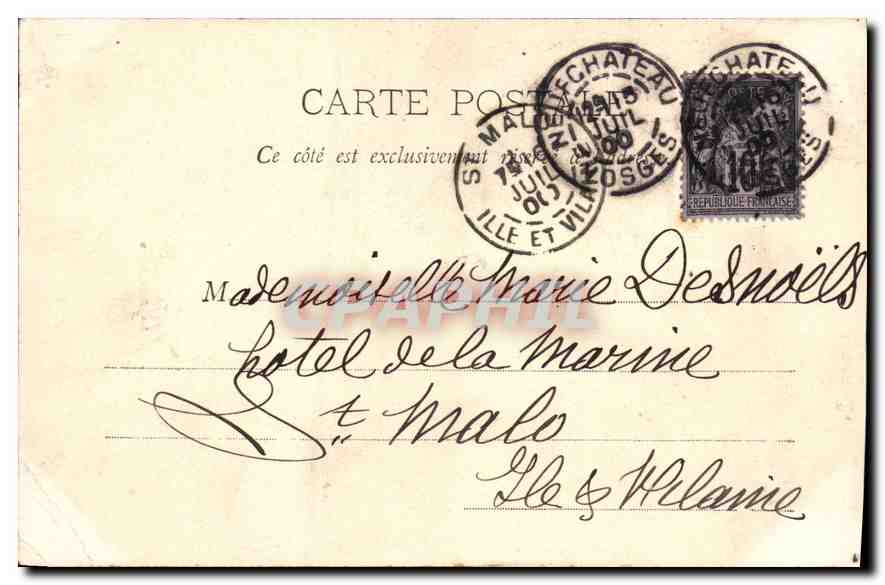 CARTE POSTALE
Ce côté est exclusivement réservé à l'adresse
NEUFCHATEAU
JUIL
00
VOSGES
NEUFCHATEAU
JUIL
00
VOSGES
POSTES
10
REPUBLIQUE FRANÇAISE
ST MALO
JUIL
00
ILLE ET VILAINE
Mademoiselle Marie Desnoëls
hotel de la Marine
St Malo
Ile & Vilaine
CPAPHIL